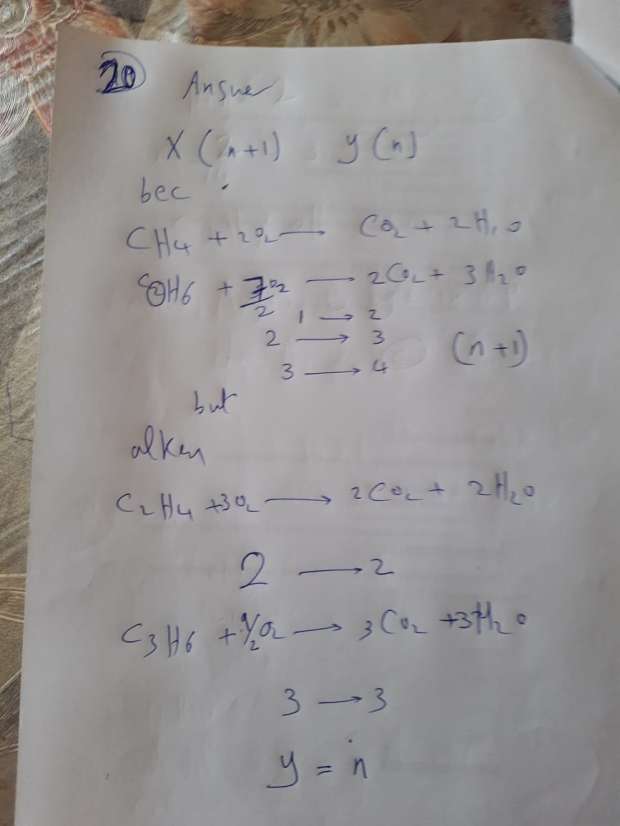 20 Answer
X (n+1) y (n)
bec
CH4 + 2O2 → CO2 + 2H2O
C2H6 + 7/2 O2 → 2CO2 + 3H2O
1 → 2
2 → 3
3 → 4 (n+1)
but
alken
C2H4 + 3O2 → 2CO2 + 2H2O
2 → 2
C3H6 + 9/2 O2 → 3CO2 + 3H2O
3 → 3
y = n